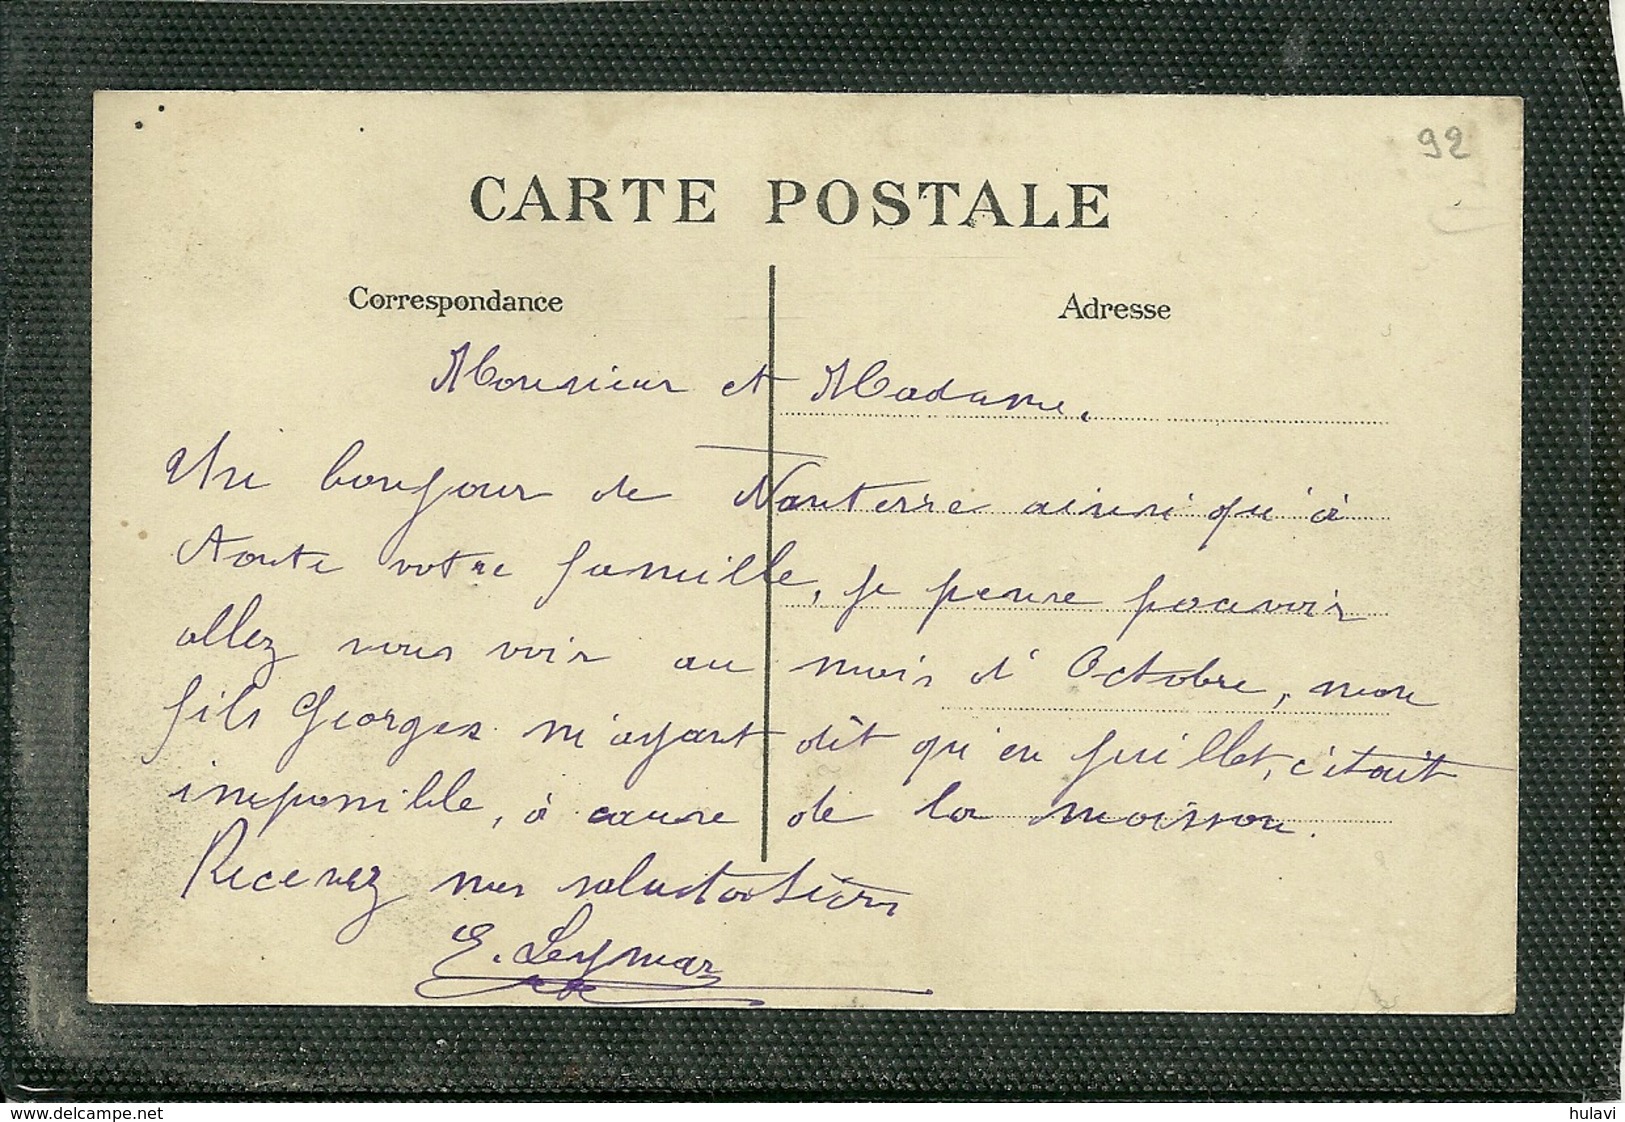 92
CARTE POSTALE
Correspondance
Adresse
Monsieur et Madame.
Un bonjour de Nanterre ainsi qu'à
toute votre famille, je pense pouvoir
allez vous voir au mois d'Octobre, mon
fils Georges m'ayant dit qu'en juillet, c'était
impossible, à cause de la moisson.
Recevez mes salutations
E. Leymar
www.delcampe.net
hulavi